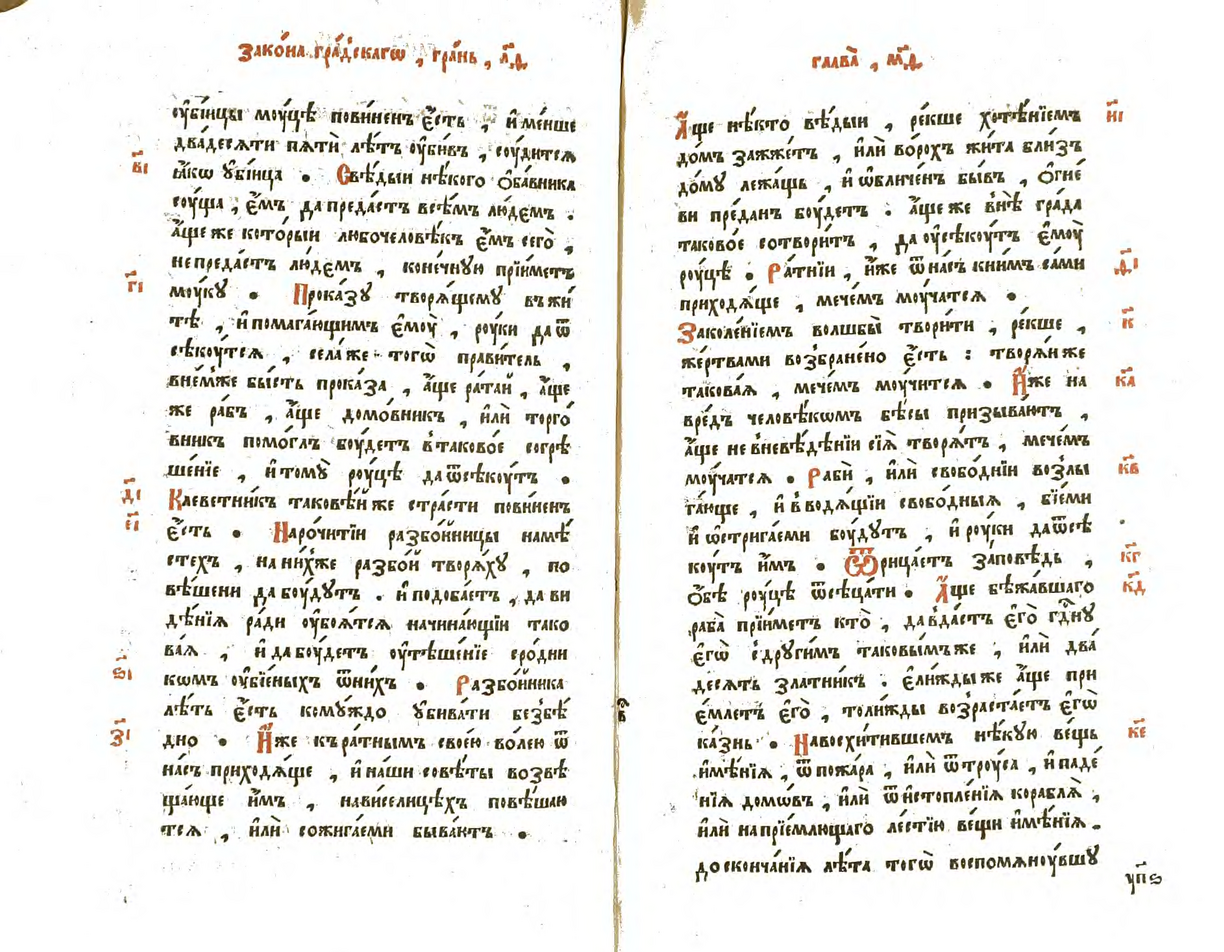 Зако́на гра́дскагѡ , гра́нь , л҃ѳ
оу҆бі́йцы моу́цѣ пови́ненъ є҆́сть , и҆ ме́нше
два́десѧти пѧти́ лѣ́тъ оу҆би́въ , соу́дитсѧ
в҃і
ꙗ҆́кѡ ᲂубі́йца . Свѣ́дыи нѣ́кого ѻ҆ба́вника
соу́ща , є҆́мъ да преда́стъ всѣ́мъ лю́демъ .
а҆́ще же кото́рыи любочеловѣ́къ є҆́мъ сего̀ ,
не преда́стъ лю́демъ , коне́чную прїи́метъ
г҃і
моу́ку . Прока́зу творѧ́щему въ жи́
тѣ , и҆ помага́ющимъ є҆моу̀ , роу́ки да ѿ
сѣкоу́тсѧ , села́ же тогѡ̀ прави́тель ,
в не́мже бы́сть прока́за , а҆́ще рата́й , а҆́ще
же ра́бъ , а҆́ще домо́вникъ , и҆лѝ торго́
вникъ помо́глъ боу́детъ в таково́е согрѣ
ше́нїе , и҆ томꙋ̀ роу́цѣ да ѿсѣкоу́тъ .
д҃і
Клеветни́къ таковѣ́й же стра́сти пови́ненъ
є҃і
є҆́сть . Наро́читїи разбо́йницы на мѣ́
стехъ , на ни́хже разбо́и творѧ́ху , по
вѣ́шени да боу́дутъ . и҆ подоба́етъ , да ви
дѣ́нїѧ ра́ди оу҆боѧ́тсѧ начина́ющїи тако
ва́ѧ , и҆ да боу́детъ оу҆тѣше́нїе сро́дни
ѕ҃і
кѡмъ оу҆бїе́ныхъ ѿ ни́хъ . Разбо́йника
лѣ́ть є҆́сть комꙋ́ждо ᲂубива́ти безбѣ́
з҃і
дно . И҆̀же къ ра́тнымъ свое́ю во́лею ѿ
на́съ приходѧ́ще , и҆ на́ши совѣ́ты возвѣ
ща́юще и҆̀мъ , на ви́селицѣхъ повѣша́ю
тсѧ , и҆лѝ сожига́еми быва́ютъ .
глава̀ , м҃ѳ
А҆́ще нѣ́кто вѣ́дыи , ре́кше хотѣ́нїемъ
и҃і
до́мъ зажже́тъ , и҆лѝ во́рохъ жи́та бли́зъ
до́му лежа́щь , и҆ ѡ҆бличе́нъ бы́въ , ѻ҆гне
ви пре́данъ боу́детъ . а҆́ще же внѣ̀ гра́да
таково́е сотвори́тъ , да оу҆сѣкоу́тъ є҆моу̀
роу́цѣ . Ра́тнїи , и҆̀же ѿ на́съ к ни́мъ са́ми
ѳ҃і
приходѧ́ще , мече́мъ моу́чатсѧ .
Заколе́нїемъ волшбы̀ твори́ти , ре́кше ,
к҃
же́ртвами возбране́но є҆́сть : творѧ́и же
такова́ѧ , мече́мъ моу́читсѧ . И҆̀же на
к҃а
вре́дъ человѣ́кѡмъ бѣ́сы призыва́ютъ ,
а҆́ще не в невѣ́дѣнїи сїѧ̀ творѧ́тъ , мече́мъ
моу́чатсѧ . Рабѝ , и҆лѝ свобо́днїи возлы
к҃в
га́юще , и҆ вводѧ́щїи свобо́дныѧ , бїе́ми
и҆ ѡ҆стрига́еми боу́дутъ , и҆ роу́ки да ѿсѣ
коу́тъ и҆̀мъ . Ѿрица́етъ за́повѣдь ,
к҃г
ѻ҆́бѣ роу́цѣ ѿсѣца́ти . А҆́ще бѣжа́вшаго
к҃д
раба̀ прїи́метъ кто̀ , да вда́стъ є҆го̀ гд҇ну
є҆гѡ̀ с други́мъ таковы́мъ же , и҆лѝ два́
десѧть злати́къ . є҆ли́жды же а҆́ще прїи
є҆́млетъ є҆го̀ , толи́жды возраста́етъ є҆гѡ̀
ка́знь . На восхити́вшемъ нѣ́кую ве́щь
к҃є
и҆мѣ́нїѧ , ѿ пожа́ра , и҆лѝ ѿ троу́са , и҆ паде́
нїѧ домѡ́въ , и҆лѝ ѿ и҆стопле́нїѧ корабла̀ ,
и҆лѝ на прїе́млющаго ле́стїю ве́щи и҆мѣ́нїѧ .
до сконча́нїѧ лѣ́та тогѡ̀ воспомѧноу́вшу
уп҃ѕ